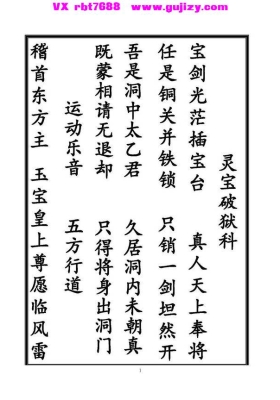 VX rbt7688 www.gujizy.com
灵宝破狱科
宝剑光茫插宝台 真人天上奉将
任是铜关并铁锁 只销一剑坦然开
吾是洞中太乙君 久居洞内未朝真
既蒙相请无退却 只得将身出洞门
运动乐音 五方行道
稽首东方主 玉宝皇上尊愿临风雷
1